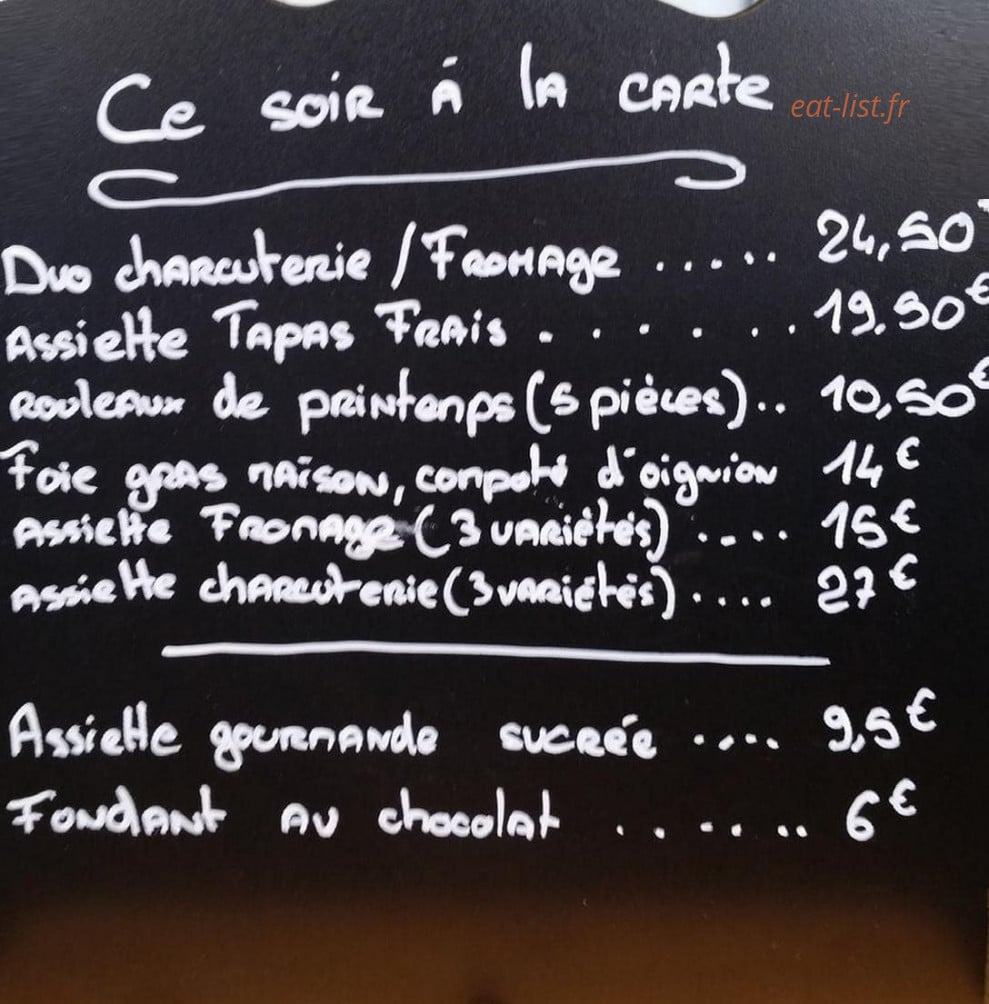 Ce soir à la carte
eat-list.fr
Duo charcuterie / Fromage ..... 24,50
Assiette Tapas Frais . . . . . . . 19.90€
Rouleaux de printemps (5 pièces) .. 10,50€
Foie gras maison, compoté d'oignion 14€
Assiette Fromage (3 variétés) ..... 15€
Assiette charcuterie (3 variétés) .... 27€
Assiette gourmande sucrée .... 9,5€
Fondant au chocolat ....... 6€